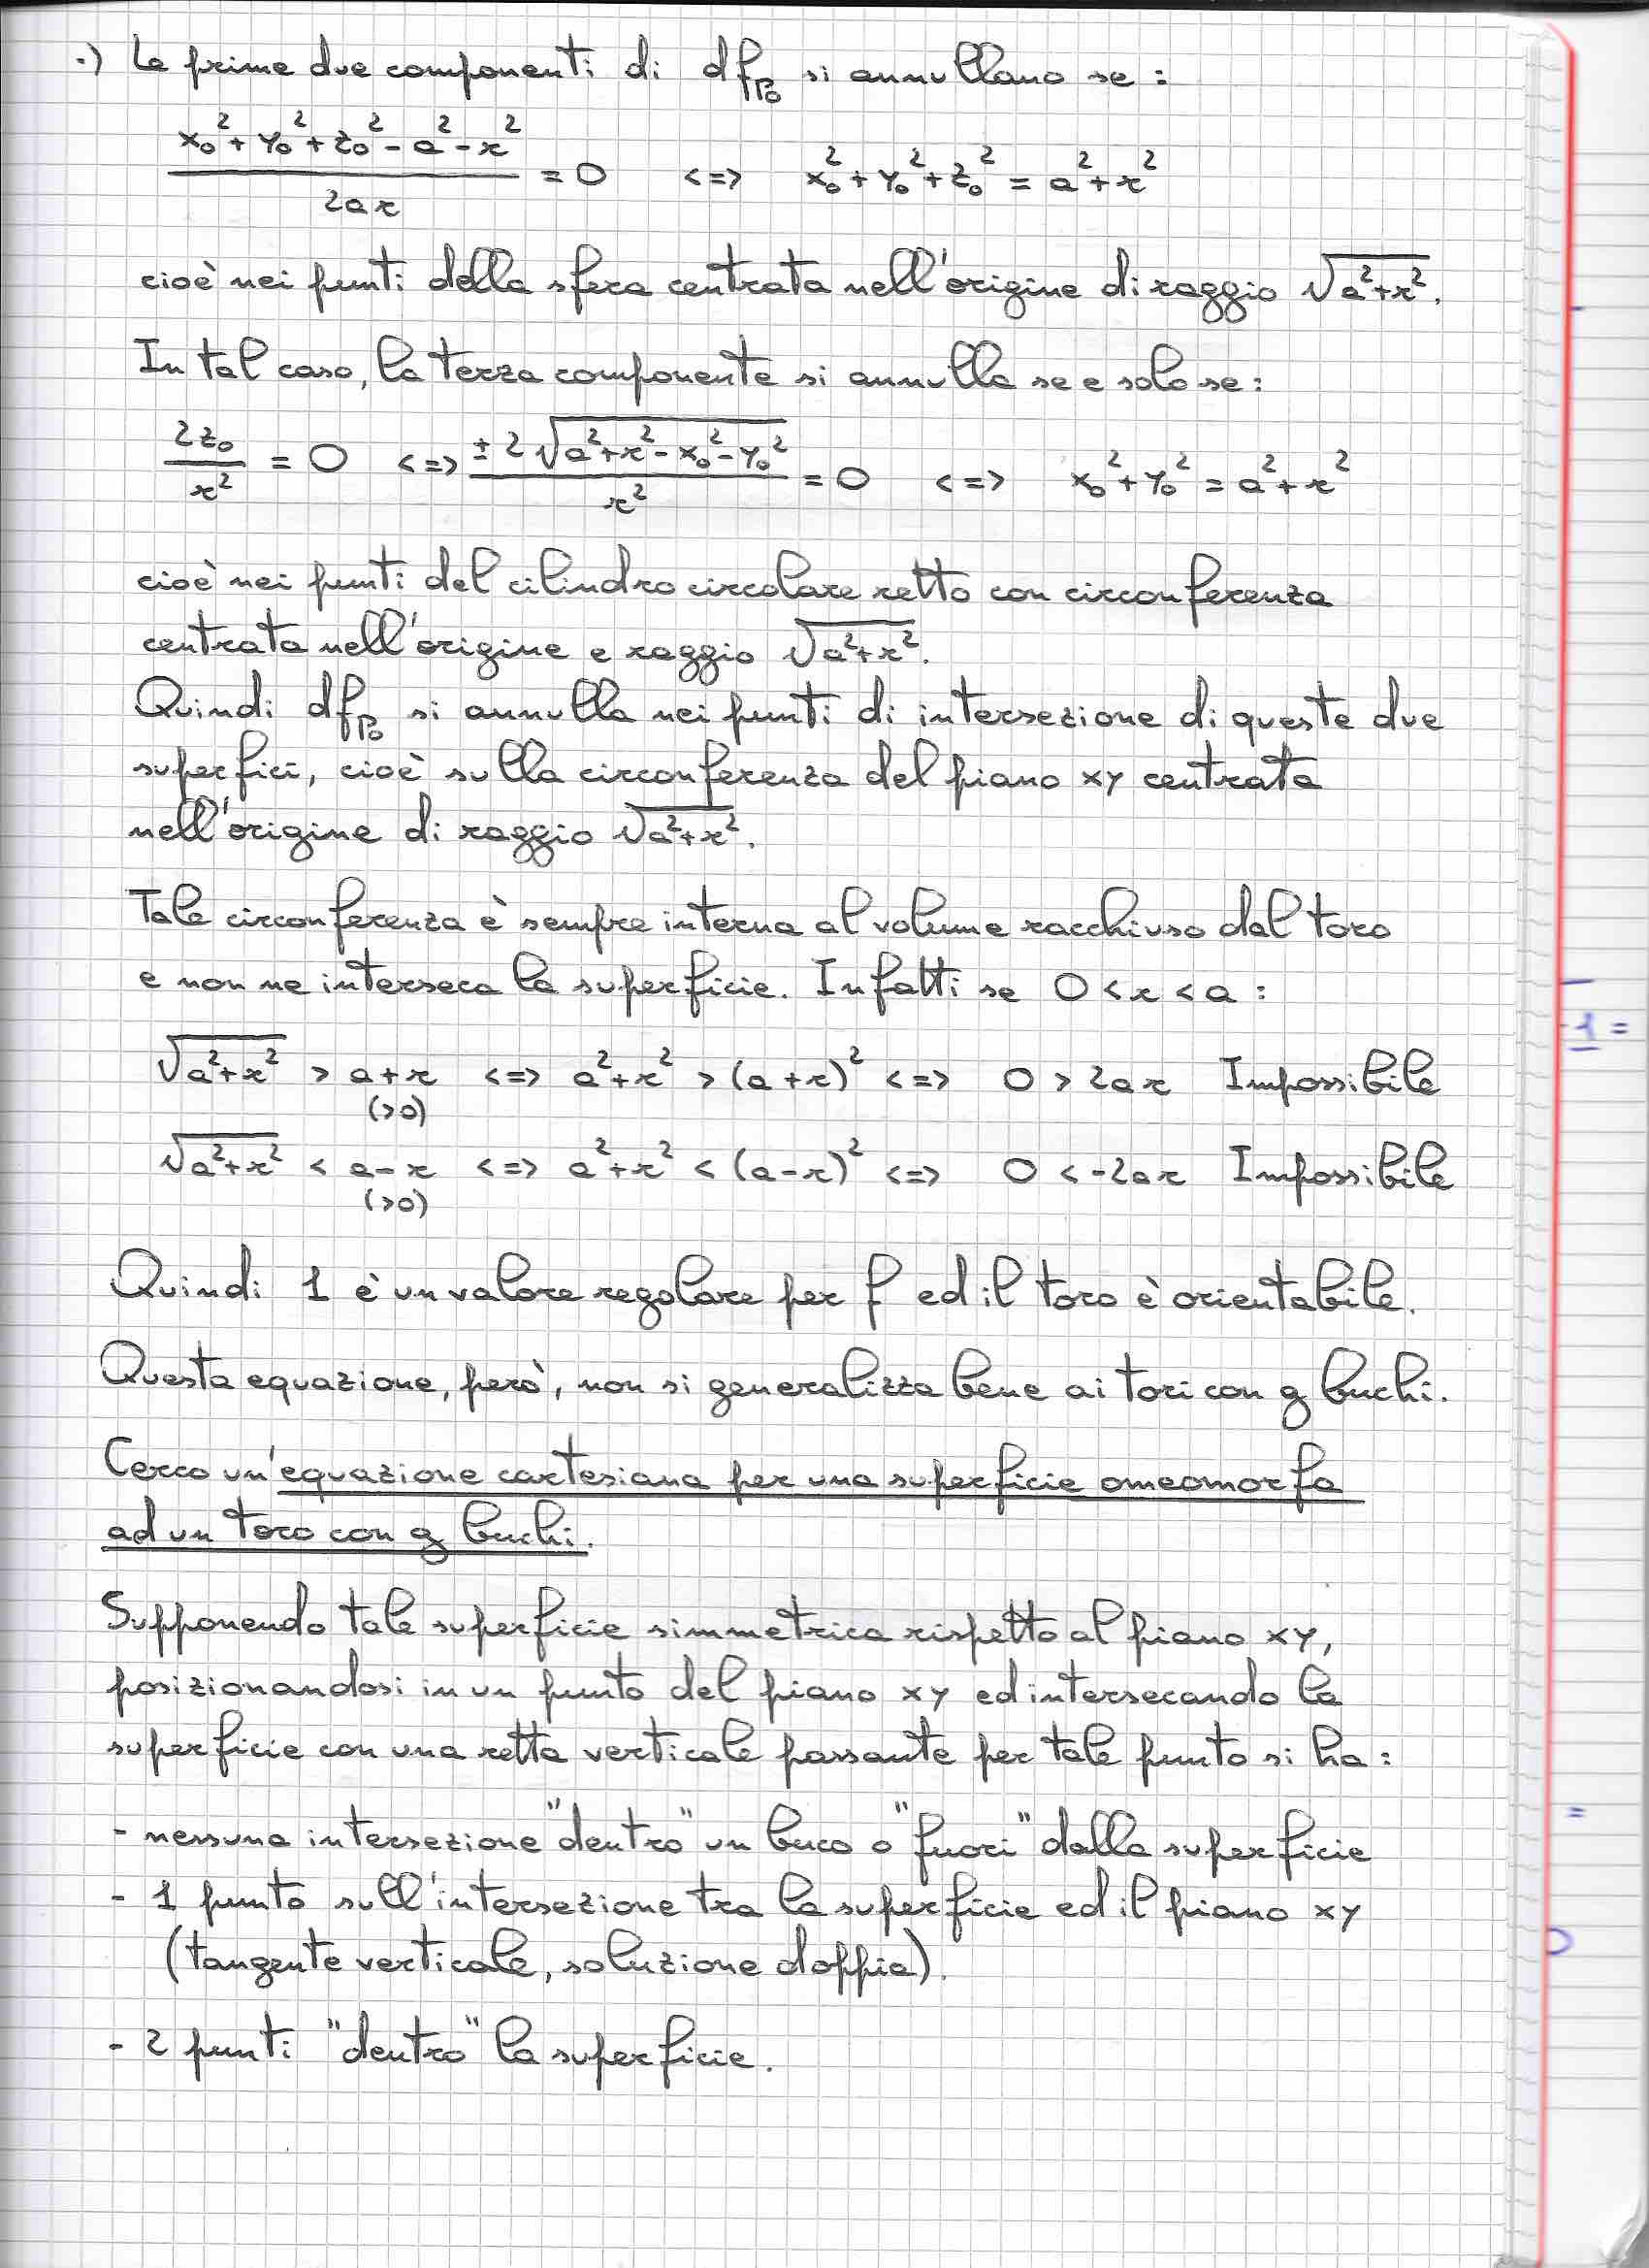 .) Le prime due componenti di df_{p_0} si annullano se:
\frac{x_0^2 + y_0^2 + z_0^2 - a^2 - r^2}{2ar} = 0 <=> x_0^2 + y_0^2 + z_0^2 = a^2 + r^2
cioè nei punti della sfera centrata nell'origine di raggio \sqrt{a^2+r^2}.
In tal caso, la terza componente si annulla se e solo se:
\frac{2z_0}{r^2} = 0 <=> \frac{\pm 2\sqrt{a^2+r^2-x_0^2-y_0^2}}{r^2} = 0 <=> x_0^2 + y_0^2 = a^2 + r^2
cioè nei punti del cilindro circolare retto con circonferenza
centrata nell'origine e raggio \sqrt{a^2+r^2}.
Quindi df_{p_0} si annulla nei punti di intersezione di queste due
superfici, cioè sulla circonferenza del piano xy centrata
nell'origine di raggio \sqrt{a^2+r^2}.
Tale circonferenza è sempre interna al volume racchiuso dal toro
e non ne interseca la superficie. Infatti se 0 < r < a :
\sqrt{a^2+r^2} > a+r <=> a^2+r^2 > (a+r)^2 <=> 0 > 2ar Impossibile
(>0)
\sqrt{a^2+r^2} < a-r <=> a^2+r^2 < (a-r)^2 <=> 0 < -2ar Impossibile
(>0)
Quindi 1 è un valore regolare per f ed il toro è orientabile.
Questa equazione, però, non si generalizza bene ai tori con g buchi.
Cerco un'equazione cartesiana per una superficie omeomorfa
ad un toro con g buchi.
Supponendo tale superficie simmetrica rispetto al piano xy,
posizionandosi in un punto del piano xy ed intersecando la
superficie con una retta verticale passante per tale punto si ha:
- nessuna intersezione "dentro" un buco o "fuori" dalla superficie
- 1 punto sull'intersezione tra la superficie ed il piano xy
(tangente verticale, soluzione doppia).
- 2 punti "dentro" la superficie.